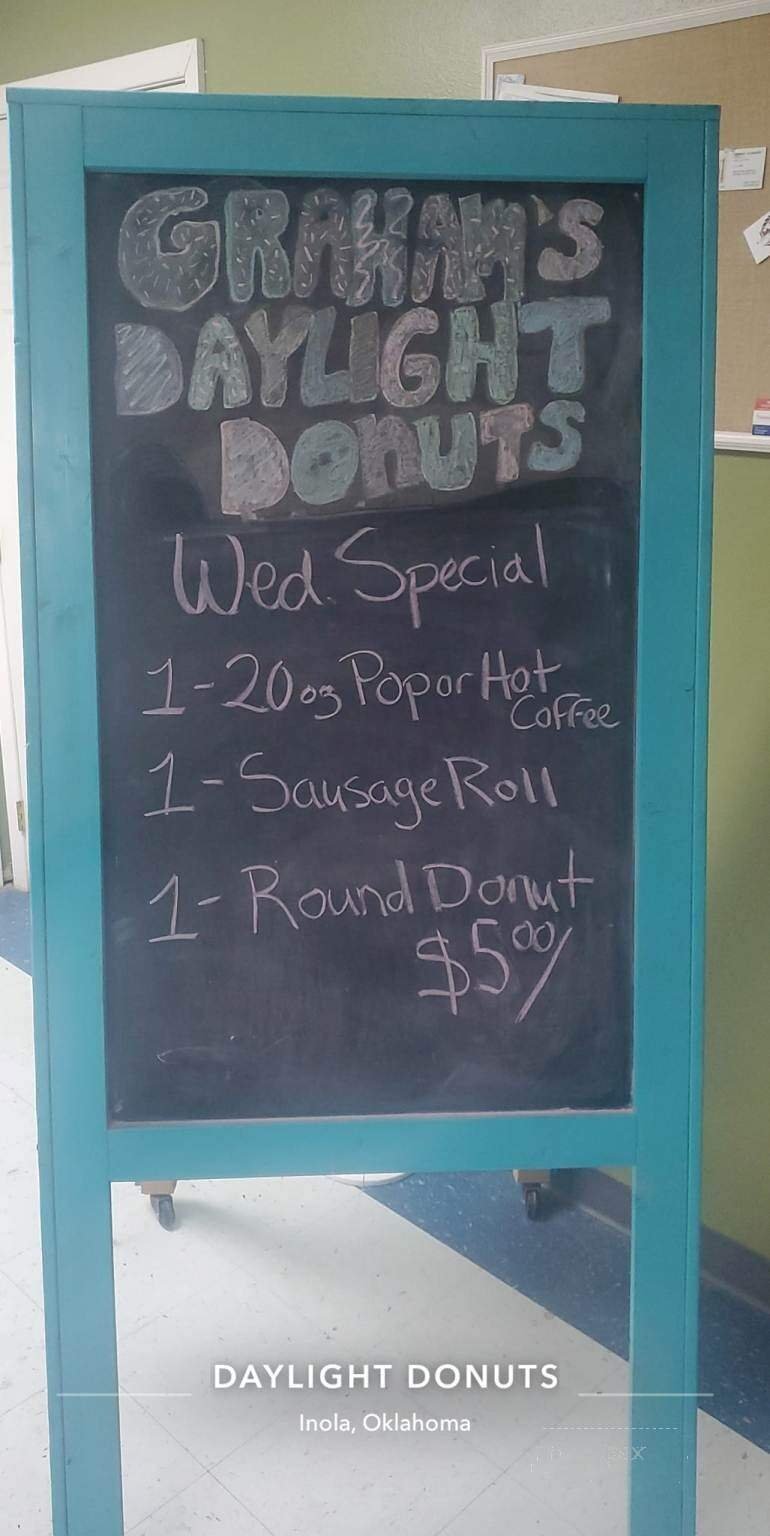 GRAHAM'S
DAYLIGHT
DONUTS
Wed. Special
1-20oz Pop or Hot
Coffee
1-Sausage Roll
1-Round Donut
$5.00/
DAYLIGHT DONUTS
Inola, Oklahoma